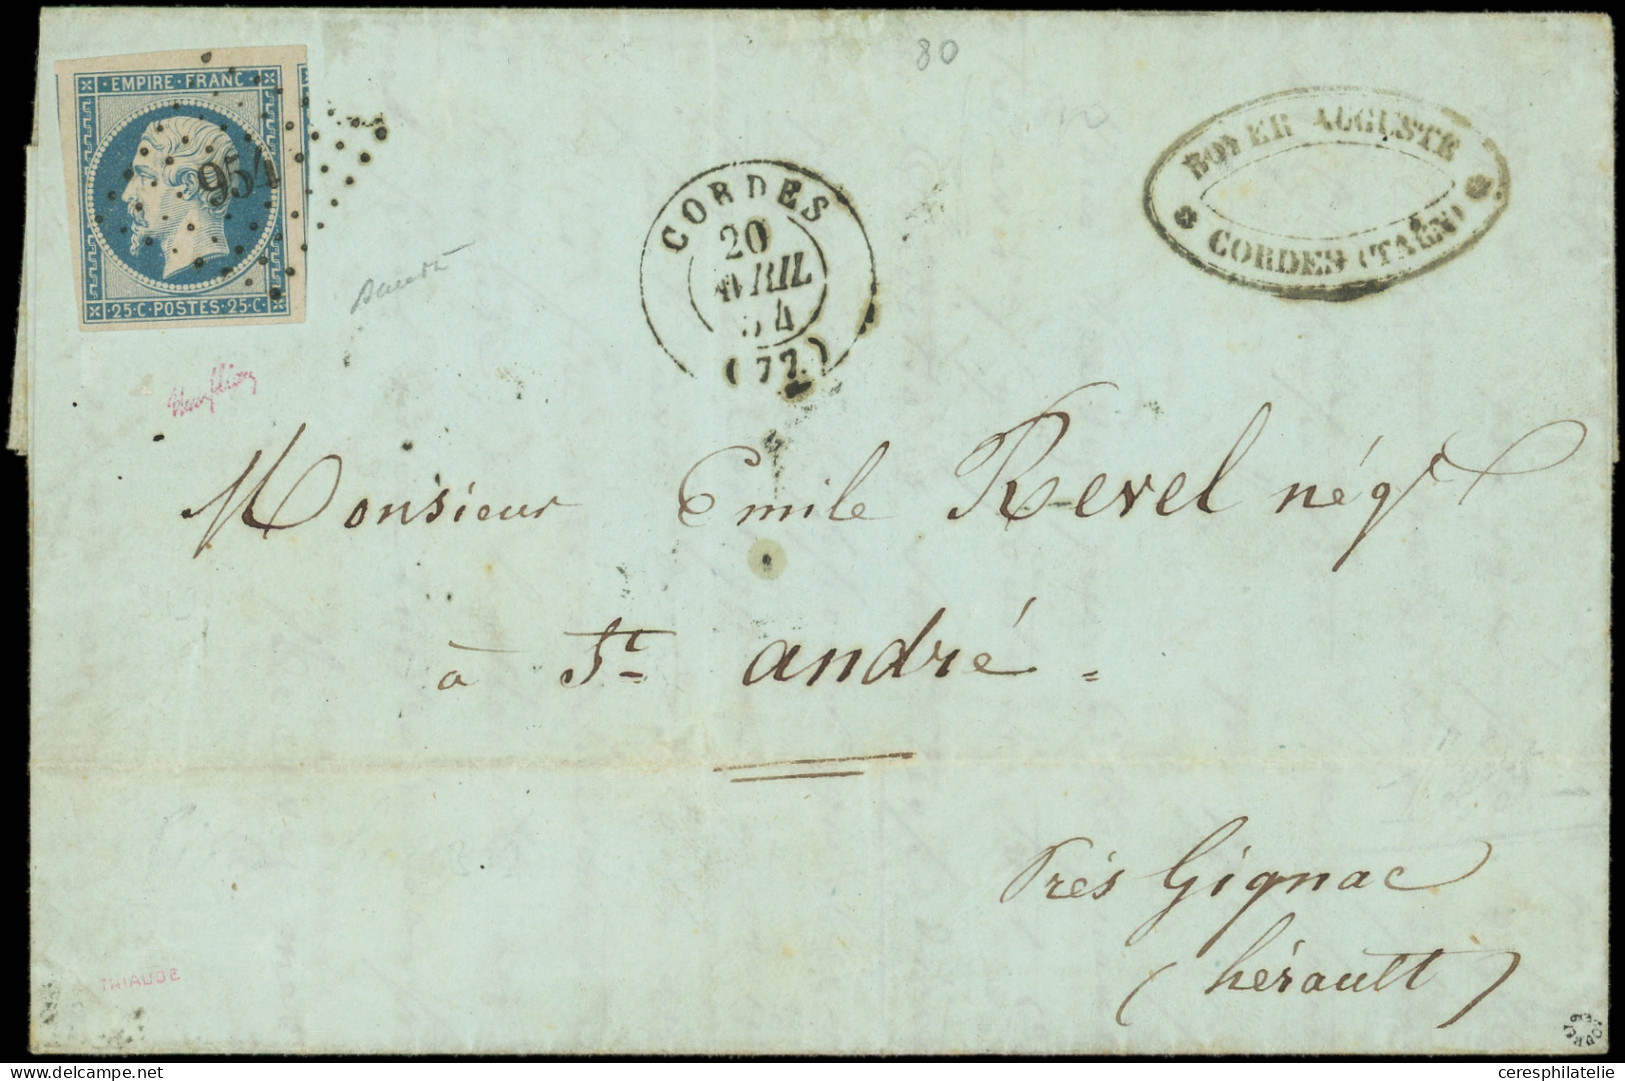 80
EMPIRE · FRANC ·
954
· 25 · C · POSTES · 25 · C ·
CORDES
20
AVRIL
54
(77)
BOYER AUGUSTE
CORDES (TARN)
Monsieur Emile Revel négt
à St andré =
Près Gignac
(hérault)
TRIAUDE
ceresphilatelie.com